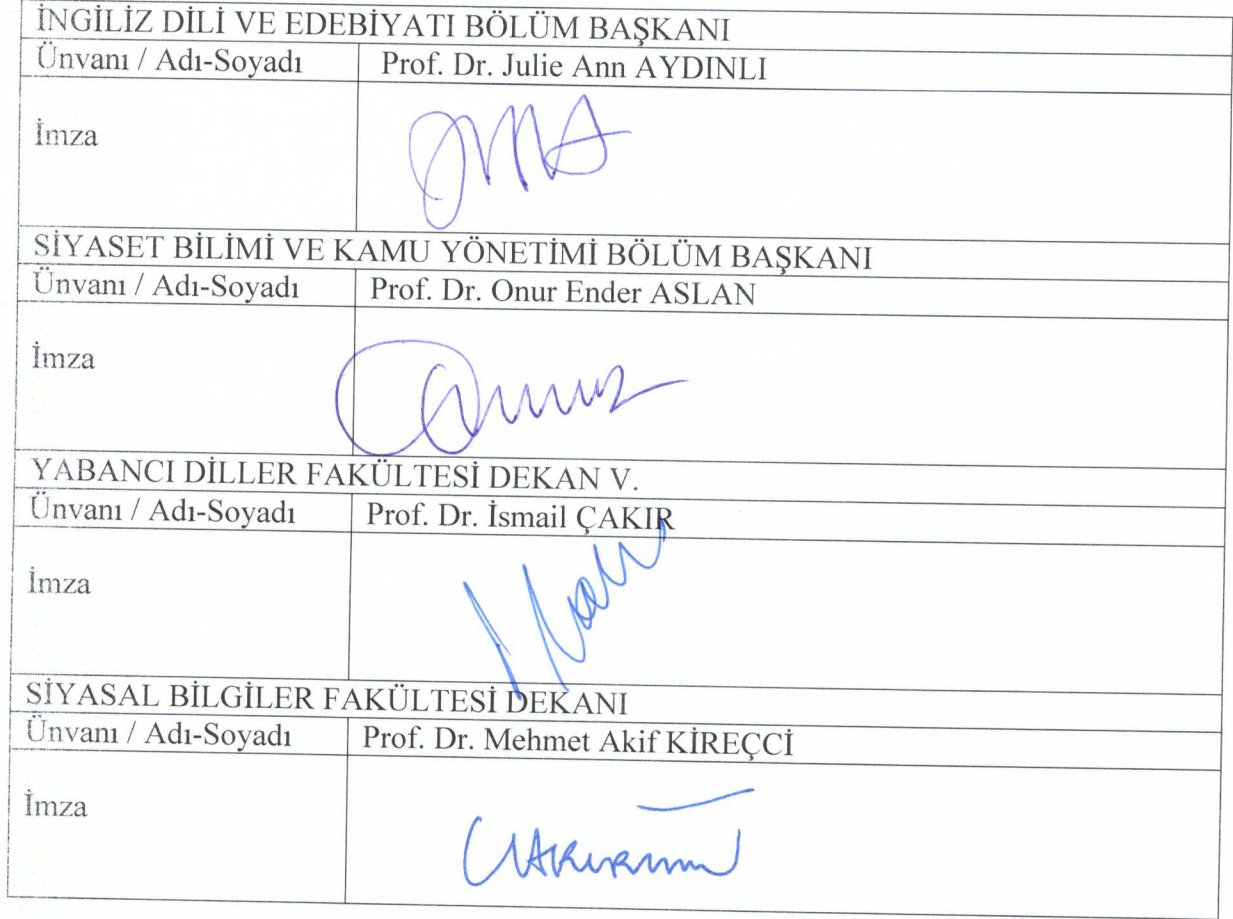 İNGİLİZ DİLİ VE EDEBİYATI BÖLÜM BAŞKANI
Ünvanı / Adı-Soyadı Prof. Dr. Julie Ann AYDINLI
İmza
SİYASET BİLİMİ VE KAMU YÖNETİMİ BÖLÜM BAŞKANI
Ünvanı / Adı-Soyadı Prof. Dr. Onur Ender ASLAN
İmza
YABANCI DİLLER FAKÜLTESİ DEKAN V.
Ünvanı / Adı-Soyadı Prof. Dr. İsmail ÇAKIR
İmza
SİYASAL BİLGİLER FAKÜLTESİ DEKANI
Ünvanı / Adı-Soyadı Prof. Dr. Mehmet Akif KİREÇCİ
İmza